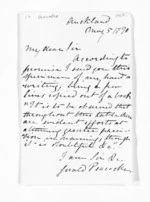 Auckland
May 5 1870
My dear Sir
According to
promise I send you this
specimen of my hand
writing; being a few
lines copied out of a book
"It is to be observed that
throughout the tablets
are evident efforts at
attaining greater
meaning; though
it is doubtful &c"
I am Sir &c
Gerard